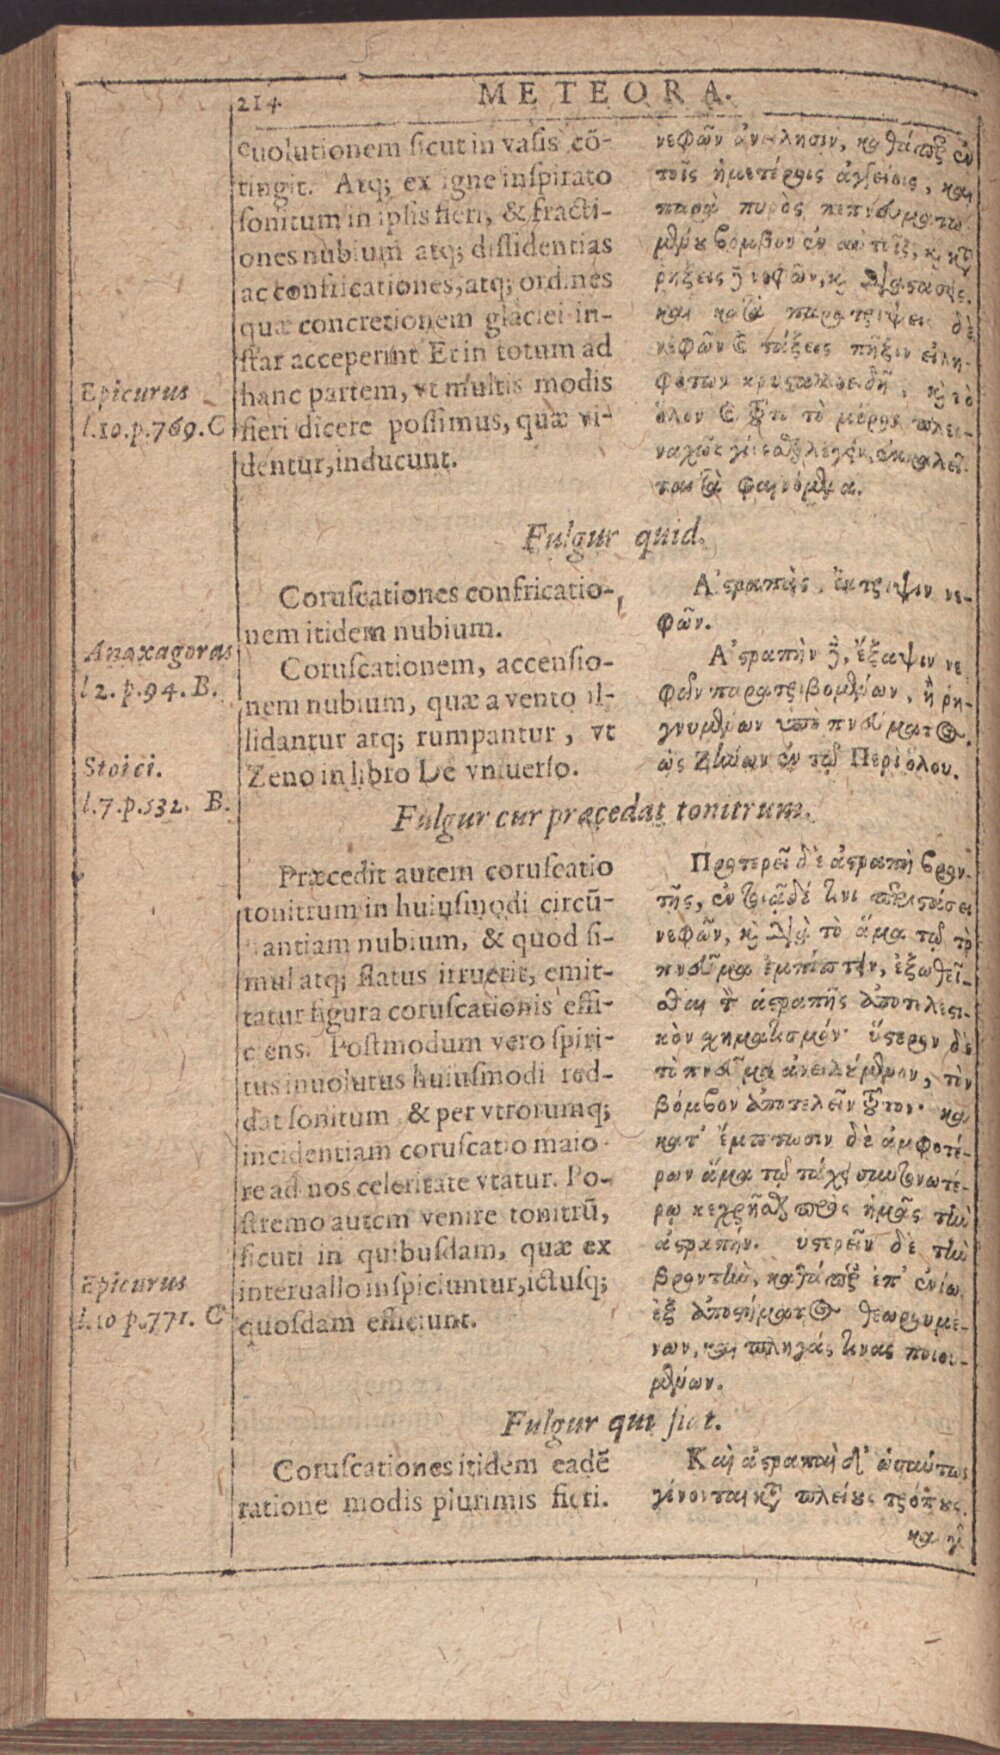 214
METEORA.
euolutionem sicut in vasis cō-
tingit. Atq; ex igne inspirato
sonitum in ipsis fieri, & fracti-
ones nubium atq; dissidentias
ac confricationes, atq; ordines
quæ concretionem glaciei in-
star acceperint Et in totum ad
hanc partem, vt multis modis
fieri dicere possimus, quæ vi-
dentur, inducunt.
Epicurus
l.10.p.769.C
νεφῶν ἀνείλησιν, καθάπερ ἐν
τοῖς ἡμετέροις ἀγγείοις, καὶ
παρὰ πυρὸς πεπνευματω
μένου βόμβον ἐν αὐτοῖς, καὶ κατὰ
ῥήξεις δὲ νεφῶν, καὶ διαστάσεις.
καὶ κατὰ παρατρίψεις δὲ
νεφῶν καὶ τάξεις πῆξιν εἰλη-
φότων κρυσταλλοειδῆ, καὶ τὸ
ὅλον καὶ τοῦτο τὸ μέρος πλεο-
ναχῶς γίνεσθαι λέγειν, ἐκκαλεῖ-
ται τὰ φαινόμενα.
Fulgur quid.
Coruscationes confricatio-
nem itidem nubium.
Coruscationem, accensio-
nem nubium, quæ a vento il-
lidantur atq; rumpantur, vt
Zeno in libro De vniuerso.
Anaxagoras
l 2. p.94. B.
Stoici.
l.7.p.532. B.
Ἀστραπὰς, ἔκτριψιν νε-
φῶν.
Ἀστραπὴν δὲ, ἔξαψιν νε
φῶν παρατριβομένων, ἢ ῥη-
γνυμένων ὑπὸ πνεύματος.
ὡς Ζήνων ἐν τῷ Περὶ ὅλου.
Fulgur cur præcedat tonitrum.
Præcedit autem coruscatio
tonitrum in huiusmodi circū-
stantiam nubium, & quod si-
mul atq; flatus irruerit, emit-
tatur figura coruscationis effi-
ciens. Postmodum vero spiri-
tus inuolutus huiusmodi red-
dat sonitum & per vtrorumq;
incidentiam coruscatio maio
re ad nos celeritate vtatur. Po-
stremo autem venire tonitrū,
sicuti in quibusdam, quæ ex
interuallo inspiciuntur, ictusq;
quosdam efficiunt.
Epicurus
l.10 p.771. C
Προτερεῖ δὲ ἀστραπὴ βρον-
τῆς, ἐν τοιᾷδέ τινι περιστάσει
νεφῶν, καὶ διὰ τὸ ἅμα τῷ τὸ
πνεῦμα ἐμπίπτειν, ἐξωθεῖ-
σθαι τὸν ἀστραπῆς ἀποτελεστι-
κὸν χηματισμόν· ὕστερον δὲ
τὸ πνεῦμα ἀνειλούμενον, τὸν
βόμβον ἀποτελεῖν τοῦτον· καὶ
κατ' ἔμπτωσιν δὲ ἀμφοτέ-
ρων ἅμα τῷ τάχει συντονωτέ-
ρῳ κεχρῆσθαι πρὸς ἡμᾶς τὴν
ἀστραπήν. ὑστερεῖν δὲ τὴν
βροντὴν, καθάπερ ἐπ' ἐνίων
ἐξ ἀποστήματος θεωρουμέ-
νων, καὶ πληγάς τινας ποιου-
μένων.
Fulgur qui fiat.
Coruscationes itidem eadē
ratione modis plurimis fieri.
Καὶ ἀστραπαὶ δ' ὡσαύτως
γίνονται κατὰ πλείους τρόπους.
καὶ γὰρ